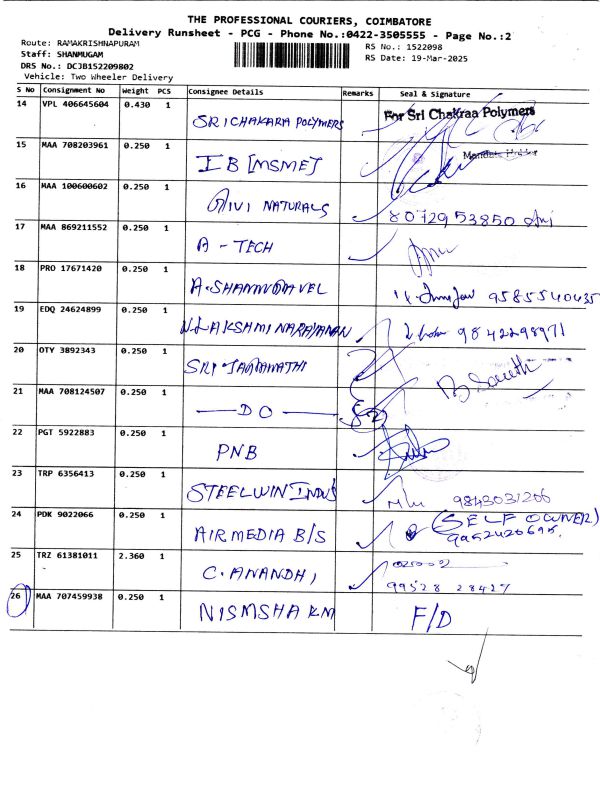 THE PROFESSIONAL COURIERS, COIMBATORE
Delivery Runsheet - PCG - Phone No.:0422-3505555 - Page No.:2
Route: RAMAKRISHNAPURAM
RS No.: 1522098
Staff: SHANMUGAM
RS Date: 19-Mar-2025
DRS No.: DCJB152209802
Vehicle: Two Wheeler Delivery
S No Consignment No Weight PCS Consignee Details Remarks Seal & Signature
14 VPL 406645604 0.430 1 SRICHAKARA POLYMERS For Sri Chakraa Polymers
15 MAA 708203961 0.250 1 IB [MSME]
16 MAA 100600602 0.250 1 NATURALS 8072953850
17 MAA 869211552 0.250 1 A - TECH
18 PRO 17671420 0.250 1 A. 9585540435
19 EDQ 24624899 0.250 1 N. LAKSHMI NARAYANAN 9842298971
20 OTY 3892343 0.250 1 SRI
21 MAA 708124507 0.250 1 DO
22 PGT 5922883 0.250 1 PNB
23 TRP 6356413 0.250 1 STEELWIN INDUS 9843031206
24 PDK 9022066 0.250 1 AIRMEDIA B/S (SELF
25 TRZ 61381011 2.360 1 C. ANANDHI 99528 28427
26 MAA 707459938 0.250 1 NISMSHA KM F/D